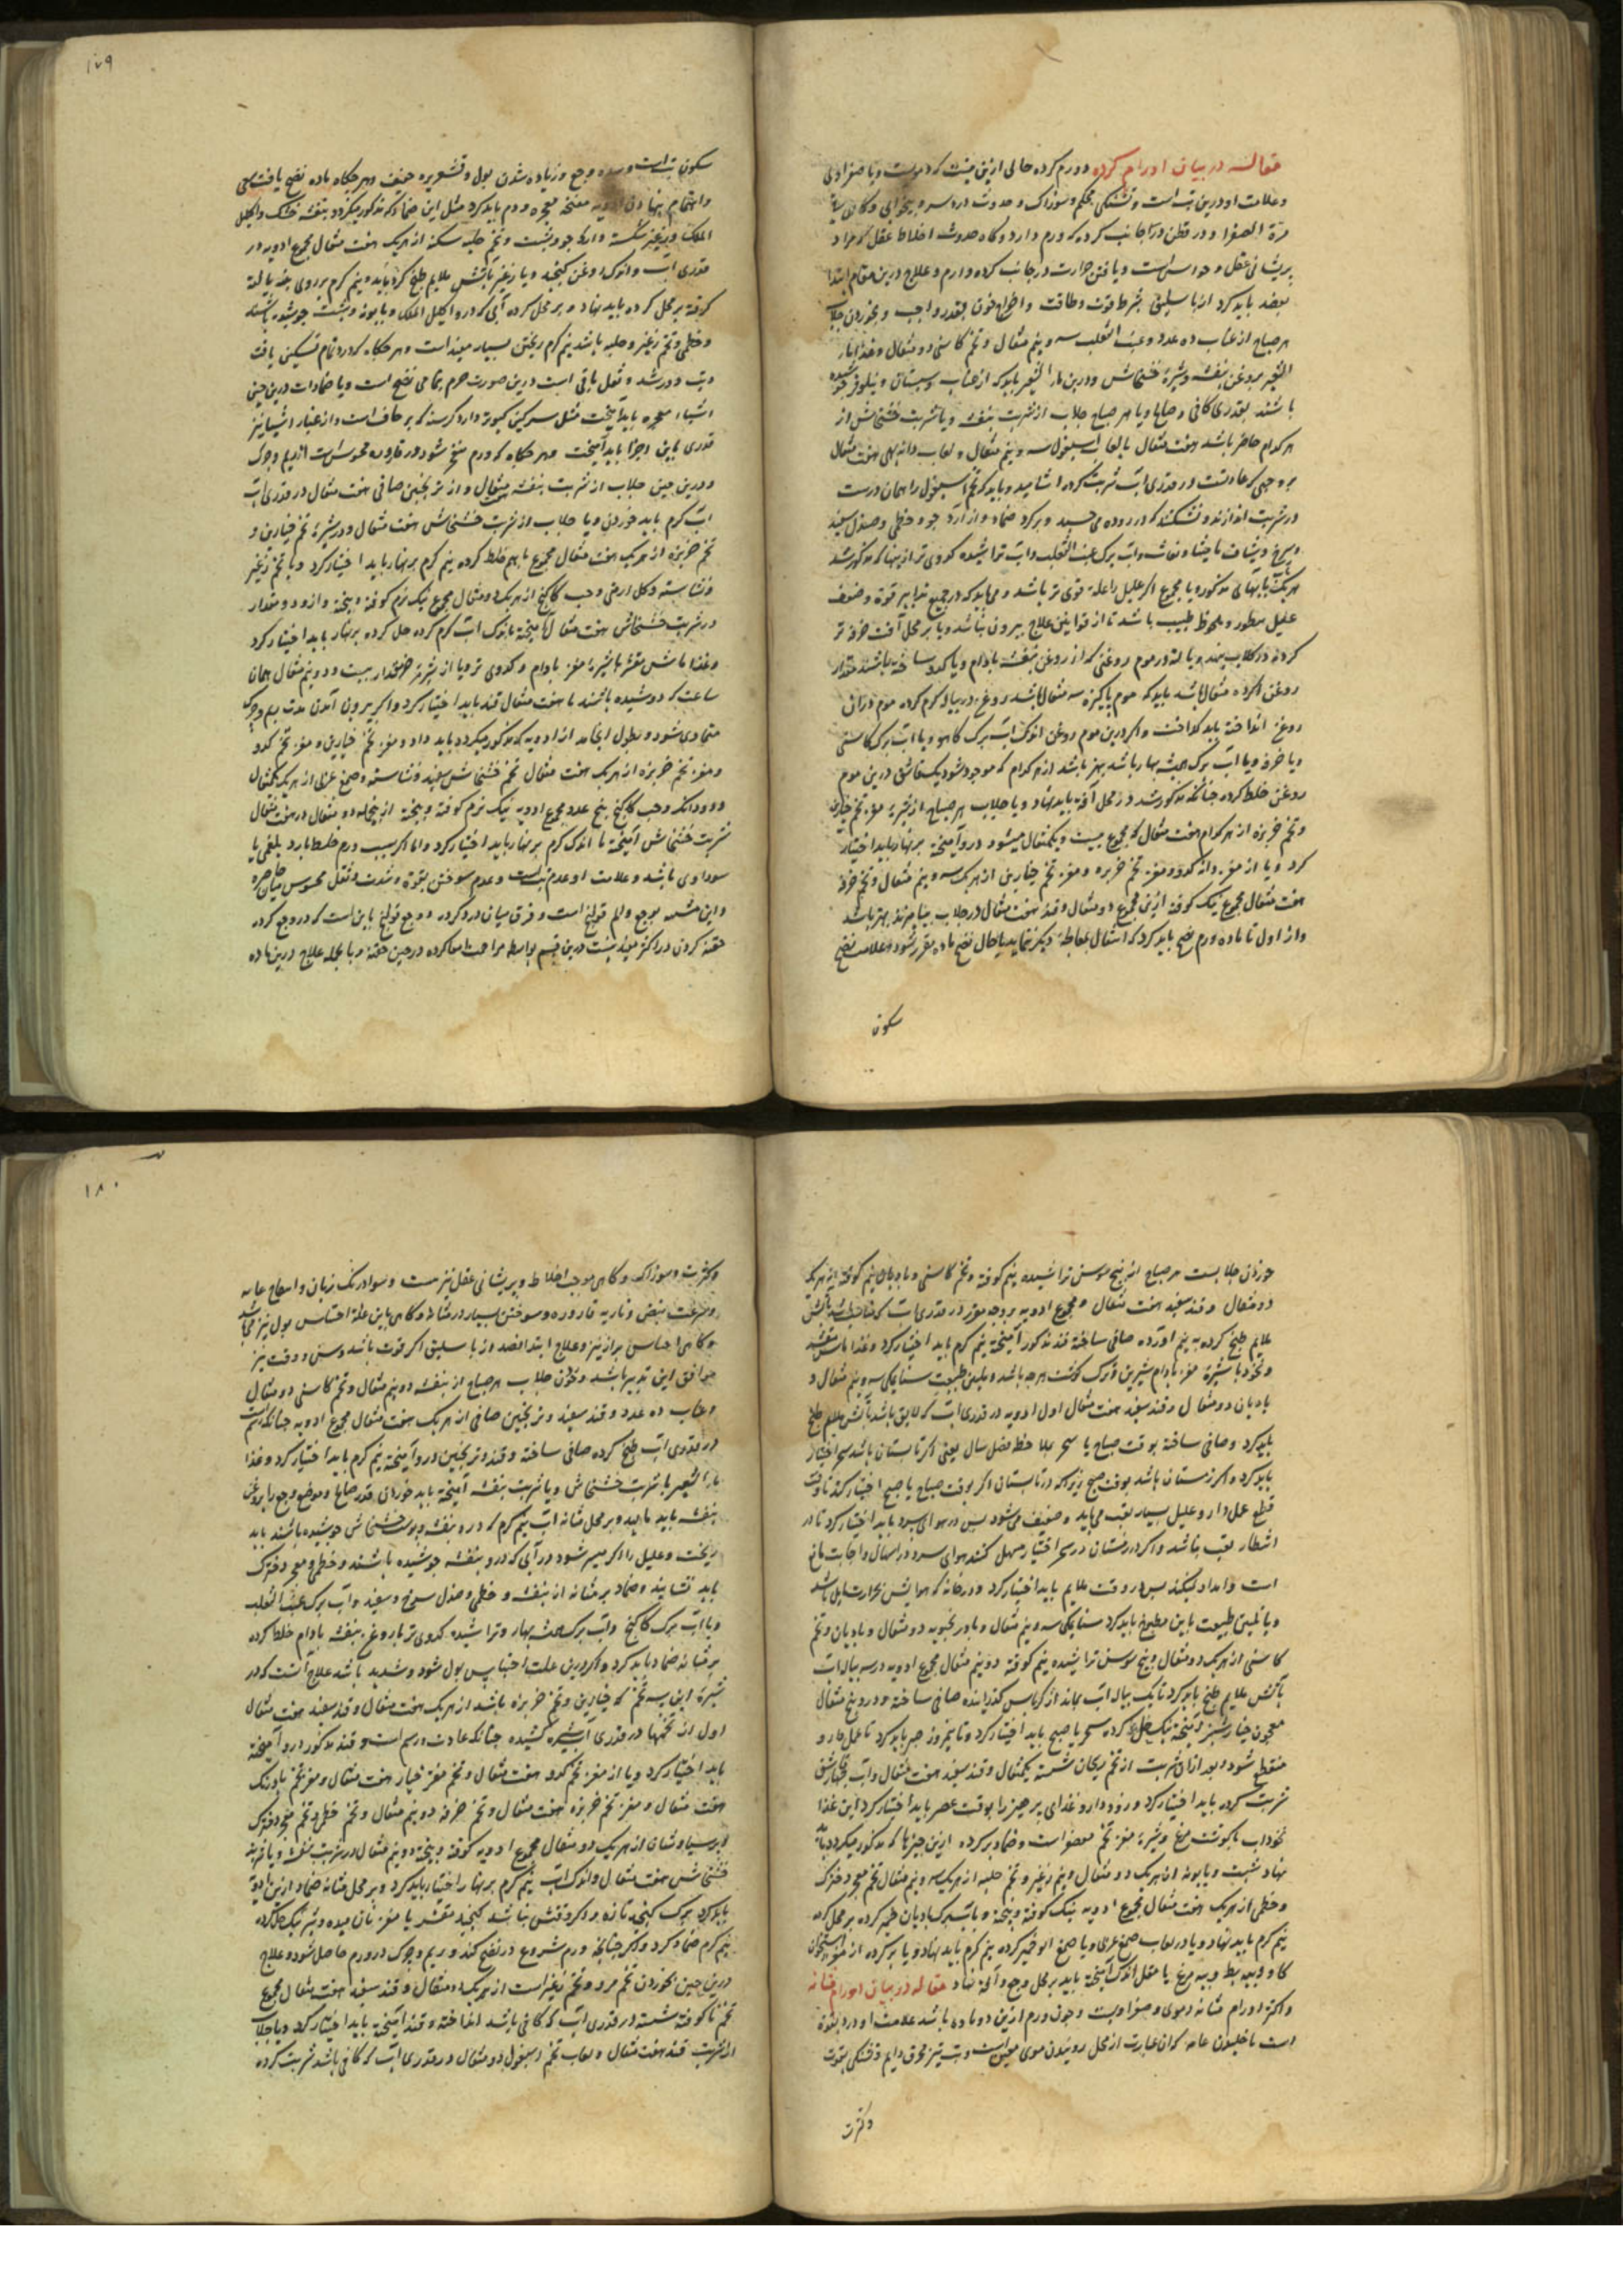 مقاله در بیان اورام کرده و ورم کرده خالی ازین نیست که دمویست و یا صفراوی
و علامات او درین تب است و تشنگی محکم و سوزناک و حدوث درد سر و بیخوابی و گاهی
مرة الصفرا و در قطن در آن جانب کرده که ورم دارد و گاه حدوث اختلاط عقل که مراد
پریشانی عقل و حواس است و یافتن حرارت در جانب کرده وارم و علاج درین مقام ابتدا
بفصد باید کرد از باسلیق بشرط قوت و طاقت و اخراج خون بقدر واجب و بخوردن جلاب
هر صباح از عناب ده عدد و عنب الثعلب سه و نیم مثقال و تخم کاسنی دو مثقال و غذا بماء
الشعیر بروغن بنفشه و شیره خشخاش و درین ماء الشعیر باید که از عناب و سپستان و نیلوفر جوشیده
باشند بقدری کافی و صالح و یا هر صباح جلاب از شربت بنفشه و یا شربت خشخاش از
هر کدام حاضر باشد هفت مثقال با لعاب اسبغول سه و نیم مثقال و لعاب دانه بهی هفت مثقال
بر وجهی که عادتست در قدری آب شربت کرده آشامید و باید که تخم اسبغول را همان درست
در شربت اندازند و نشکنند که در روده می چسبد و برکرده ضماد از آرد جو و خطمی و صندل سفید
هر یک با بهایی مذکوره یا مجموع اگر علیل را علة قوی تر باشد و می باید که در جمیع تدابیر قوة و ضعف
علیل منظور و ملحوظ طبیب باشد تا از قوانین علاج بیرون نباشد و یا بر محل آفت خرقه تر
کرده در کلاب نهند و یا لته در موم روغنی که از روغن بنفشه بادام و یا کدو ساخته باشند مقدار
روغن اگر ده مثقال باشد باید که موم پاکیزه سه مثقال باشد روغن در پیاله گرم کرده موم در آن
روغن انداخته باید گداخت و اگر درین موم روغن اندک آب برک کاهو و یا آب برک کاسنی
و یا خرفه و یا آب برک همیشه بهار باشد بهتر باشد از هر کدام که موجود شود یک قاشق درین موم
روغن خلط کرده چنانکه مذکور شد در محل آفة باید نهاد و یا جلاب هر صباح از شیره مغز تخم خیارین
و تخم خربزه از هر کدام هفت مثقال که مجموع بیست و یکمثقال میشود درو آمیخته بر نهار باید اختیار
کرد و یا از مغز دانه کدو و مغز تخم خربزه و مغز تخم خیارین از هر یک سه و نیم مثقال و تخم خرفه
هفت مثقال مجموع نیک کوفته ازین مجموع دو مثقال و قند هفت مثقال در جلاب بیامیزند بهتر باشد
و از اول تا ماده ورم نضج باید کرد که انتقال بمعالجه دیگر نماید تا حال نضج ماده مقرر شود و علامت نضج
سکون
۱۷۹
سکون تب است و وجع و زیاده شدن بول و قشعریره خفیف و هر جکاه ماده نضج یافت سعی
و اهتمام بنهادن ادویه منضجه مفجره ورم باید کرد مثل این ضماد که مذکور میگردد بنفشه خشک و اکلیل
الملک و زغیر شکسته و آرد جو و شبت و تخم حلبه سکنه از هر یک هفت مثقال مجموع ادویه در
قدری آب و اندک روغن کنجید و یا زغیر بآتش ملایم طبخ کرد باید و نیم گرم بر روی پنبه یا لته
کرفته بر محل کرده باید نهاد و بر محل کرده آبی که درو اکلیل الملک و بابونه و شبت جوشیده باشند
و خطمی و تخم زغیر و حلبه باشد نیم گرم ریختن بسیار مفید است و هر جکاه که درد تمام تسکین یافت
و تب دور شد و ثقل باقی است درین صورت حرم بتمامی نضج است و یا ضمادات درین حین
اشیاء مفجره باید آمیخت مثل سرکین کبوتر و آرد کرسنه که بر حاف است و از غبار آسیا نیز
قدری باین اجزا باید آمیخت و هر جکاه که ورم منفجر شود در قاروره محسوس است از ریم و چرک
و درین حین جلاب از شربت بنفشه مثقال و از ترنجبین صافی هفت مثقال در قدری آب
آب گرم باید خوردن و یا جلاب از شربت خشخاش هفت مثقال و در شیره تخم خیارین و
تخم خربزه از هر یک هفت مثقال مجموع باهم خلط کرده نیم گرم بر نهار باید اختیار کرد و یا تخم زغیر
و نشاسته و کل ارمنی و حب کاکنج از هر یک دو مثقال مجموع نیک نرم کوفته و بیخته و از دو مقدار
در شربت خشخاش هفت مثقال آمیخته باندک آب گرم کرده حل کرده بر نهار باید اختیار کرد
و غذا ماش مقشر با شیره مغز بادام و کدوی تر و یا از شیر بز مقدار بیست و دو نیم مثقال همان
ساعت که دوشیده باشند با هفت مثقال قند باید اختیار کرد و اگر بیرون آمدن مدت ریم و چرک
متمادی شود و بطول انجامد از ادویه که مذکور میگردد باید داد و مغز تخم خیارین و مغز تخم کدو
و مغز تخم خربزه از هر یک هفت مثقال تخم خشخاش سفید و نشاسته و صمغ عربی از هر یک یکمثقال
و دو دانک و حب کاکنج پنج عدد مجموع ادویه نیک نرم کوفته و بیخته از بنجمله دو مثقال در هفت مثقال
شربت خشخاش آمیخته با اندک گرم بر نهار باید اختیار کرد و اما اگر سبب ورم خلط بارد بلغمی یا
سوداوی باشد و علامت او عدم تب است و عدم سوختن بقوة و شدت و ثقل محسوس میان خاصره
و این مشبه بوجع و الم قولنج است و فرق میان درد کرده و وجع قولنج باین است که در وجع کرده
حقنه کردن در اکثر مفید نیست درین قسم بواسطه مزاحمت امعا کرده در حین حقنه و بالجمله علاج درین ماده
خوردن جلابست هر صباح از بیخ سوسن تراشیده نیم کوفته و تخم کاسنی و بادیان نیم کوفته از هر یک
دو مثقال و قند سفید هفت مثقال و مجموع ادویه بر وجه مقرر در قدری آب که مناسب باشد بآتش
ملایم طبخ کرده به نیم آورده صافی ساخته قند مذکور آمیخته نیم گرم باید اختیار کرد و غذا ماش مقشر
و نخود با شیره مغز بادام شیرین و ترک گوشت هر چه باشد و ملین طبیعت سنا مکی سه و نیم مثقال و
بادیان دو مثقال و قند سفید هفت مثقال اول ادویه در قدری آب که لایق باشد بآتش ملایم طبخ
باید کرد و صافی ساخته بوقت صباح یا سحر بملاحظه فصل سال یعنی اگر تابستان باشد سحر اختیار
باید کرد و اگر زمستان باشد بوقت صبح زیرا که در تابستان اگر بوقت صباح یا صبح اختیار کند تا وقت
قطع عمل دارو علیل بسیار تعب می یابد و ضعیف می شود پس در هوای سرد باید اختیار کرد تا در
انتظار تعب نباشد و اگر در زمستان در سحر اختیار مسهل کنند هوای سرد در اسهال و اجابت مانع
است و امداد نیکند پس در وقت ملایم باید اختیار کرد و در خانه که هوایش بحرارت مایل باشد
و یا تلیین طبیعت باین مطبوخ باید کرد سنا مکی سه و نیم مثقال و بادرنجبویه دو مثقال و بادیان و تخم
کاسنی از هر یک دو مثقال و بیخ سوسن تراشیده نیم کوفته دو نیم مثقال مجموع ادویه در سه پیاله آب
بآتش ملایم طبخ باید کرد تا یک پیاله آب بماند از کرباس گذرانیده صافی ساخته و درو پنج مثقال
معجون خیار شنبر آمیخته نیک حل کرده سحر یا صبح باید اختیار کرد و تا نیمروز صبر باید کرد تا عمل دارو
منقطع شود و بعد از آن شربت از تخم ریحان شسته یکمثقال و قند سفید هفت مثقال و آب چهار قاشق
شربت کرده باید اختیار کرد و روز دارو غذای پرهیز را بوقت عصر باید اختیار کرد این غذا
نخوداب با گوشت مرغ و شیره مغز تخم معصفر است و ضماد بر کرده ازین چیزها که مذکور میگردد باید
نهاد شبت و بابونه از هر یک دو مثقال و نیم زغیر و تخم حلبه از هر یک سه و نیم مثقال تخم مجو دخترک
و خطمی از هر یک هفت مثقال مجموع ادویه نیک کوفته و بیخته و بآب برک بادیان خمیر کرده بر محل کرده
نیم گرم باید نهاد و یا در لعاب صمغ عربی و یا صمغ آلو خمیر کرده نیم گرم باید نهاد و یا بر کرده از مغز استخوان
گاو و پیه بط و پیه مرغ با مقل اندک آمیخته باید بر محل وجع و آفة نهاد مقاله در بیان اورام مثانه
و اکثر اورام مثانه دموی و صفراویست و چون ورم ازین دو ماده باشد علامت او درد بقوة
است با خلیدن عانه که ان عبارت از محل روئیدن موی معین است و تب تیز محرق دایم و تشنگی بقوت
و کثرت
۱۸۰
و کثرت و سوزناک و گاهی موجب اختلاط و پریشانی عقل نیز هست و سواد رنک زبان و انتفاخ عانه
و سرعت نبض و ناریه قاروره و سوختن بسیار در مثانه و گاهی باین علة احتباس بول نیز می باشد
و گاهی احتباس براز نیز و علاج ابتدا فصد از باسلیق اگر قوت باشد و سن و وقت نیز
موافق این تدبیر باشد و خوردن جلاب هر صباح از بنفشه دو نیم مثقال و تخم کاسنی دو مثقال
و عناب ده عدد و قند سفید و ترنجبین صافی از هر یک هفت مثقال مجموع ادویه چنانکه رسم است
در قدری آب طبخ کرده صافی ساخته و قند و ترنجبین درو آمیخته نیم گرم باید اختیار کرد و غذا
ماء الشعیر با شربت خشخاش و یا شربت بنفشه آمیخته باید خوردن قدر صالح و موضع وجع را بروغن
بنفشه باید مالید و بر محل مثانه آب نیم گرم که درو بنفشه و پوست خشخاش جوشیده باشند باید
ریخت و علیل را اگر میسر شود در آبی که درو بنفشه جوشیده باشند و خطمی و مجو دخترک
باید نشانید و ضماد بر مثانه از بنفشه و خطمی و صندل سرخ و سفید و آب برک عنب الثعلب
و یا آب برک کاکنج و آب برک همیشه بهار و تراشیده کدوی تر با روغن بنفشه بادام خلط کرده
بر مثانه ضماد باید کرد و اگر درین علت احتباس بول شود و شدید باشد علاج آنست که در
شیره این سه تخم که خیارین و تخم خربزه باشد از هر یک هفت مثقال و قند سفید هفت مثقال
اول از تخمها در قدری آب شیره کشیده چنانکه عادت و رسم است و قند مذکور در او آمیخته
باید اختیار کرد و یا از مغز تخم کدو هفت مثقال و تخم مغز خیار هفت مثقال و مغز تخم بادرنک
هفت مثقال و مغز تخم خربزه هفت مثقال و تخم خرفه دو نیم مثقال و تخم خطمی و تخم مجو دخترک
و پرسیاوشان از هر یک دو مثقال مجموع ادویه کوفته و بیخته دو نیم مثقال در شربت بنفشه و یا شربت
خشخاش هفت مثقال و اندک آب نیم گرم بر نهار اختیار باید کرد و بر محل مثانه ضماد ازین ادویه
باید کرد برک کنجید تازه و اگر وقتش نباشد کنجید مقشر با مغز نان میده و شیر نیک حل کرده
نیم گرم ضماد کرد و اگر چنانچه ورم شروع در نضج کند و ریم و چرک در ورم حاصل شود و علاج
درین حین بخوردن تخم مرو و تخم زغیر است از هر یک دو مثقال و قند سفید هفت مثقال مجموع
تخم ناکوفته شسته در قدری آب که کافی باشد انداخته و قند آمیخته باید اختیار کرد و یا جلاب
از شربت قند هفت مثقال و لعاب تخم اسبغول دو مثقال در قدری آب که کافی باشد شربت کرده